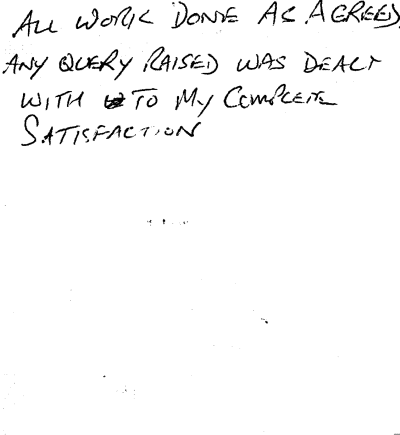 ALL WORK DONE AS AGREED.
ANY QUERY RAISED WAS DEALT
WITH TO MY COMPLETE
SATISFACTION